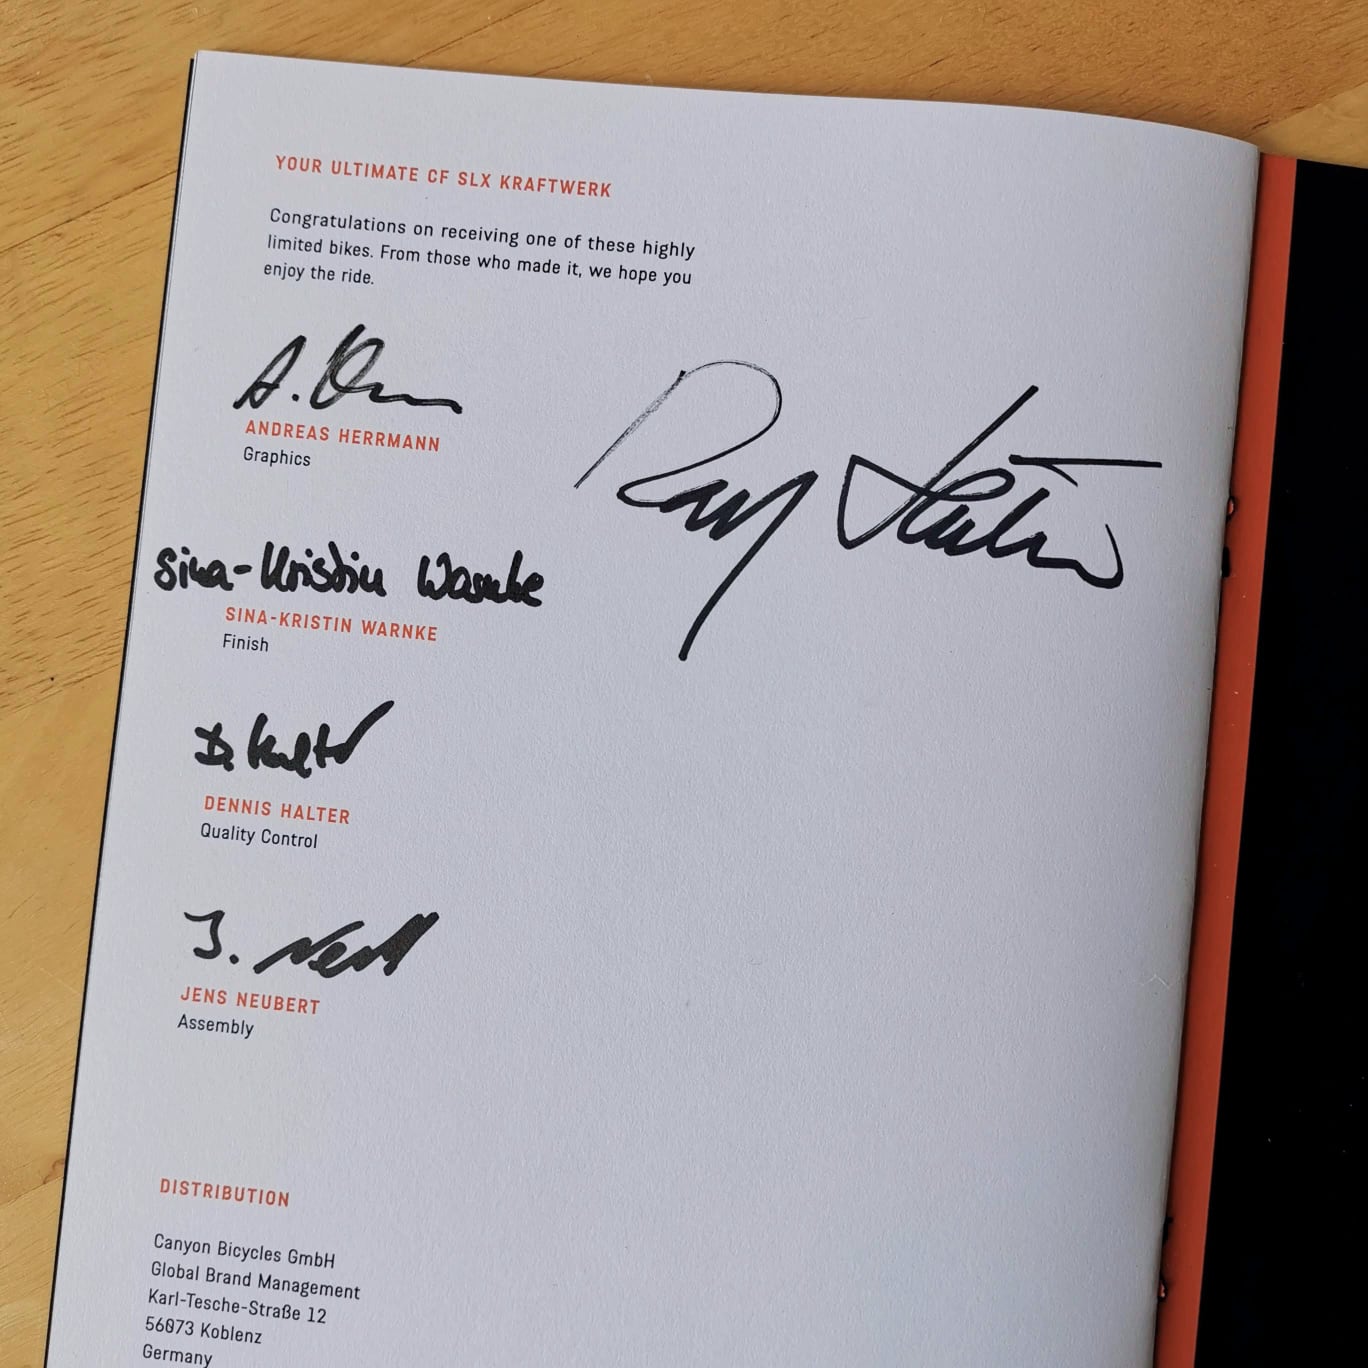 YOUR ULTIMATE CF SLX KRAFTWERK
Congratulations on receiving one of these highly
limited bikes. From those who made it, we hope you
enjoy the ride.
A.
ANDREAS HERRMANN
Graphics
Sina-Kristin Warnke
SINA-KRISTIN WARNKE
Finish
D. Halter
DENNIS HALTER
Quality Control
J.
JENS NEUBERT
Assembly
DISTRIBUTION
Canyon Bicycles GmbH
Global Brand Management
Karl-Tesche-Straße 12
56073 Koblenz
Germany